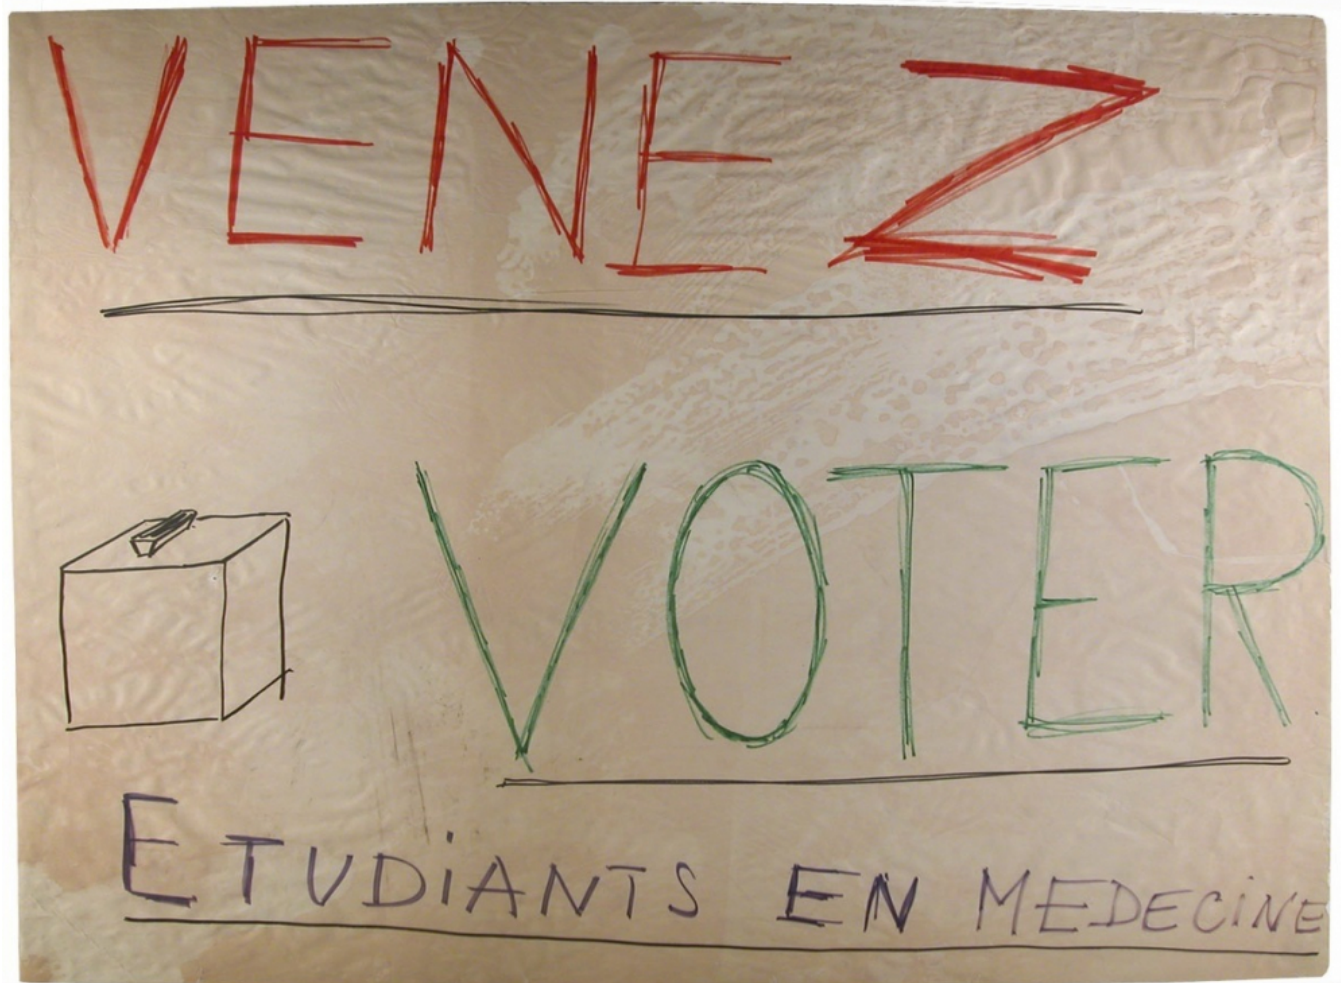 VENEZ
VOTER
ETUDiANTS EN MEDECiNE